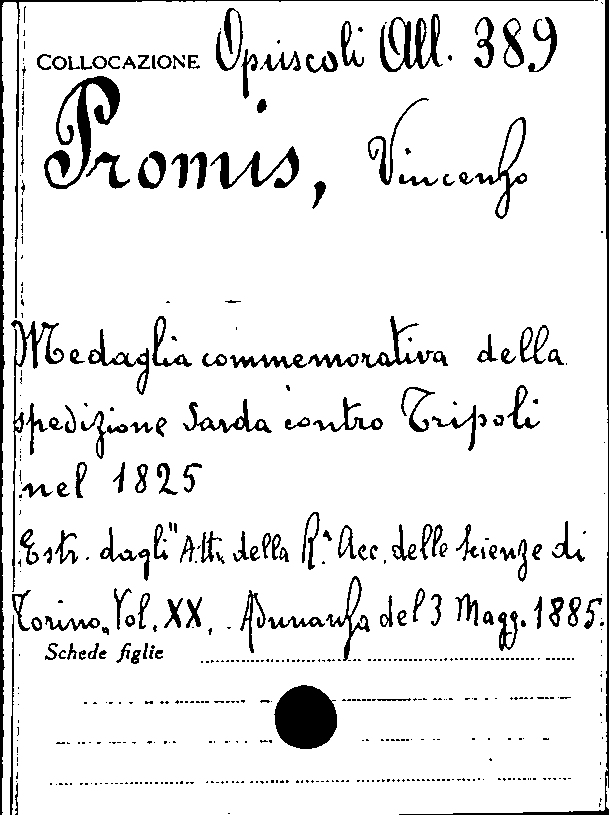 COLLOCAZIONE Opuscoli All. 389
Promis, Vincenzo
Medaglia commemorativa della
spedizione Sarda contro Tripoli
nel 1825
Estr. dagli "Atti della R.ª Acc. delle Scienze di
Torino„ Vol. XX, Adunanza del 3 Magg. 1885.
Schede figlie